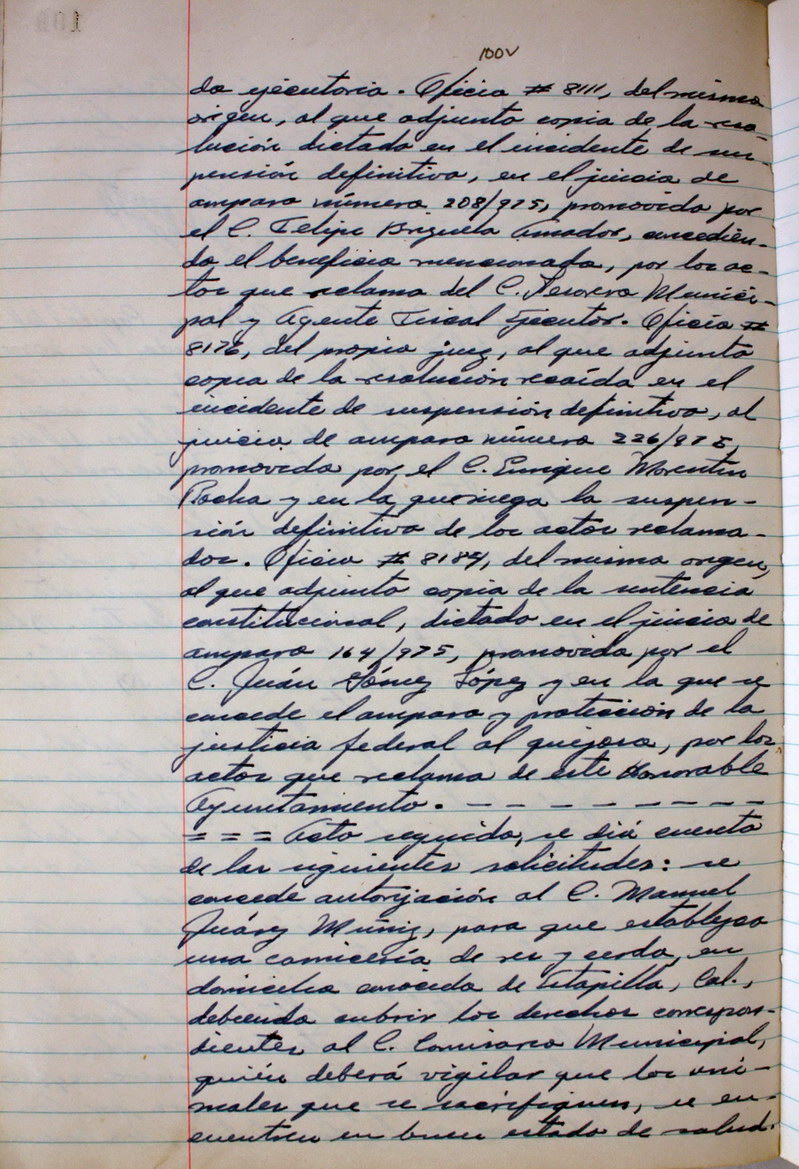 100v
da ejecutoria. Oficio # 8111, del mismo
origen, al que adjunta copia de la reso-
lución dictada en el incidente de sus-
pensión definitiva, en el juicio de
amparo número 208/975, promovido por
el C. Felipe Brizuela Amador, concedién-
do el beneficio mencionado, por los ac-
tos que reclama del C. Tesorero Munici-
pal y Agente Fiscal Ejecutor. Oficio #
8176, del propio juez, al que adjunta
copia de la resolución recaída en el
incidente de suspensión definitiva, al
juicio de amparo número 226/975,
promovido por el C. Enrique Morentin
Rocha y en la que niega la suspen-
sión definitiva de los actos reclama-
dos. Oficio # 8184, del mismo origen,
al que adjunta copia de la sentencia
constitucional, dictada en el juicio de
amparo 164/975, promovido por el
C. Juán Gómez López y en la que se
concede el amparo y protección de la
justicia federal al quejoso, por los
actos que reclama de este Honorable
Ayuntamiento. - - - - - - - - -
= = = Acto seguido, se dió cuenta
de las siguientes solicitudes: se
concede autorización al C. Manuel
Juárez Muñiz, para que establezca
una carnicería de res y cerdo, en
domicilio conocido de Ixtapilla, Col.,
debiendo cubrir los derechos correspon-
dientes al C. Comisario Municipal,
quién deberá vigilar que los ani-
males que se sacrifiquen, se en-
cuentren en buen estado de salud.